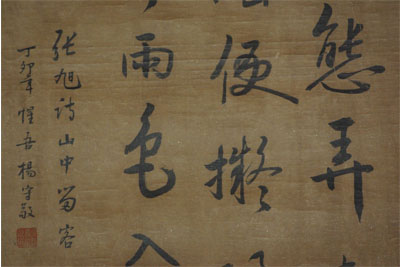 態弄
便擬
雨色入
張旭詩山中留客
丁卯年惺吾楊守敬